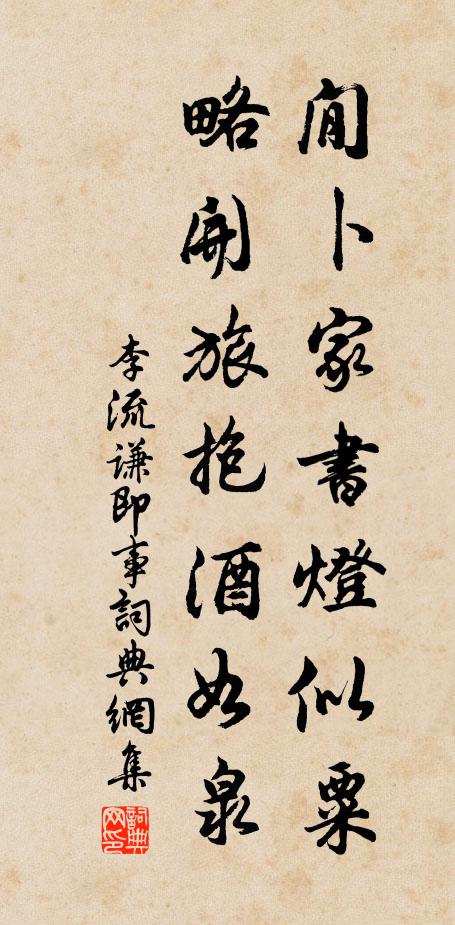 閒卜家書燈似粟
略開旅抱酒如泉
李流謙即事詞典網集
詞典網印